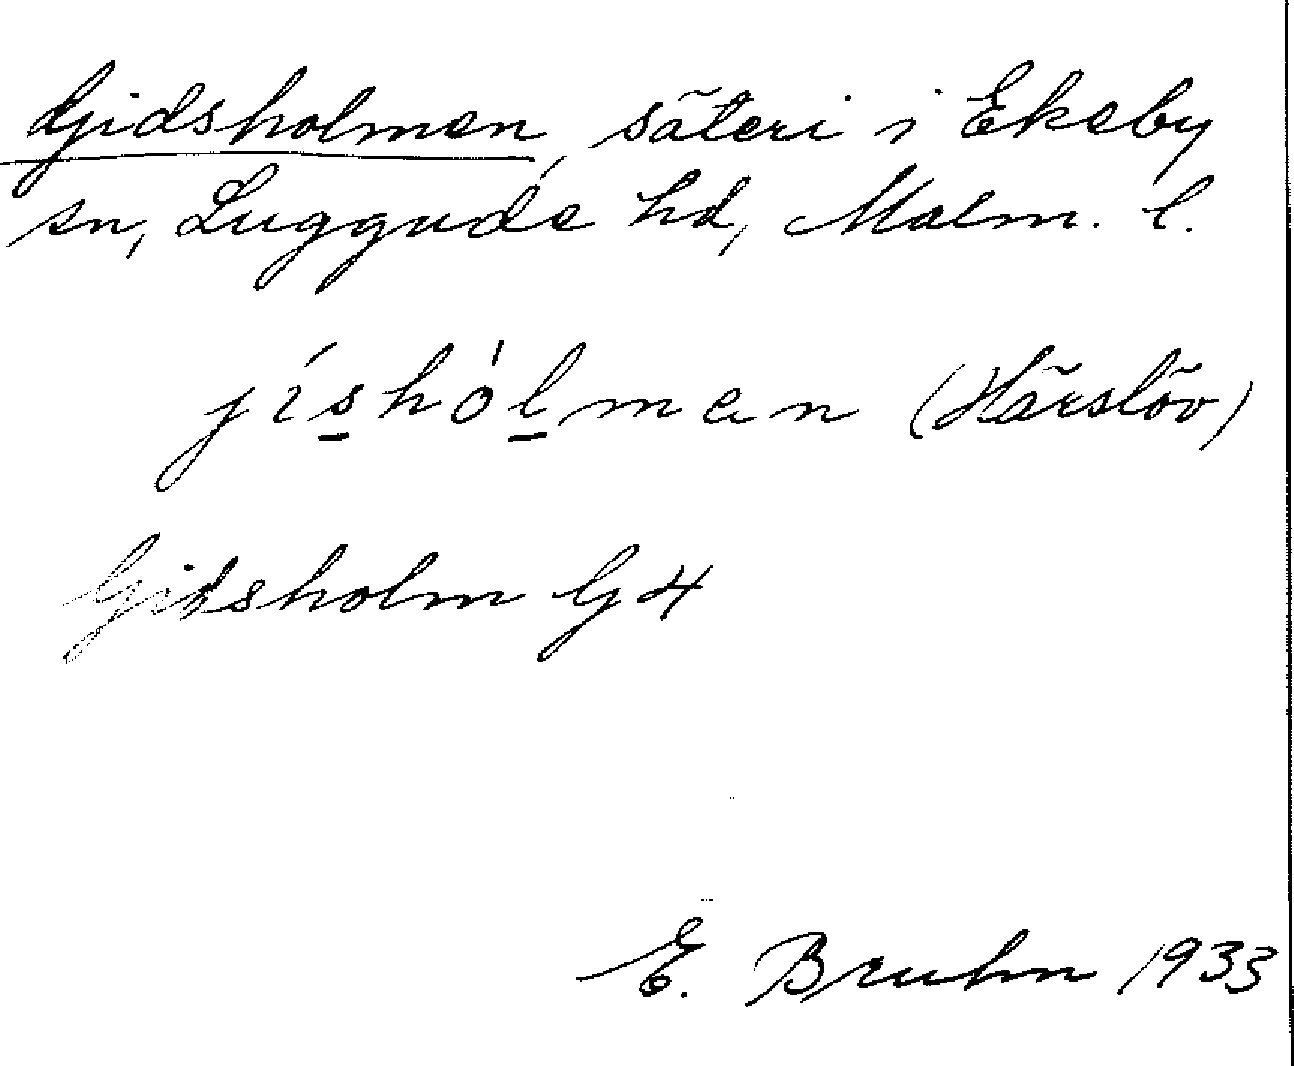 Gjidsholmen, säteri i Ekeby
sn, Luggude hd, Malm. l.
jíshólman (Härslöv)
Gjidsholm G4
E. Bruhn 1933